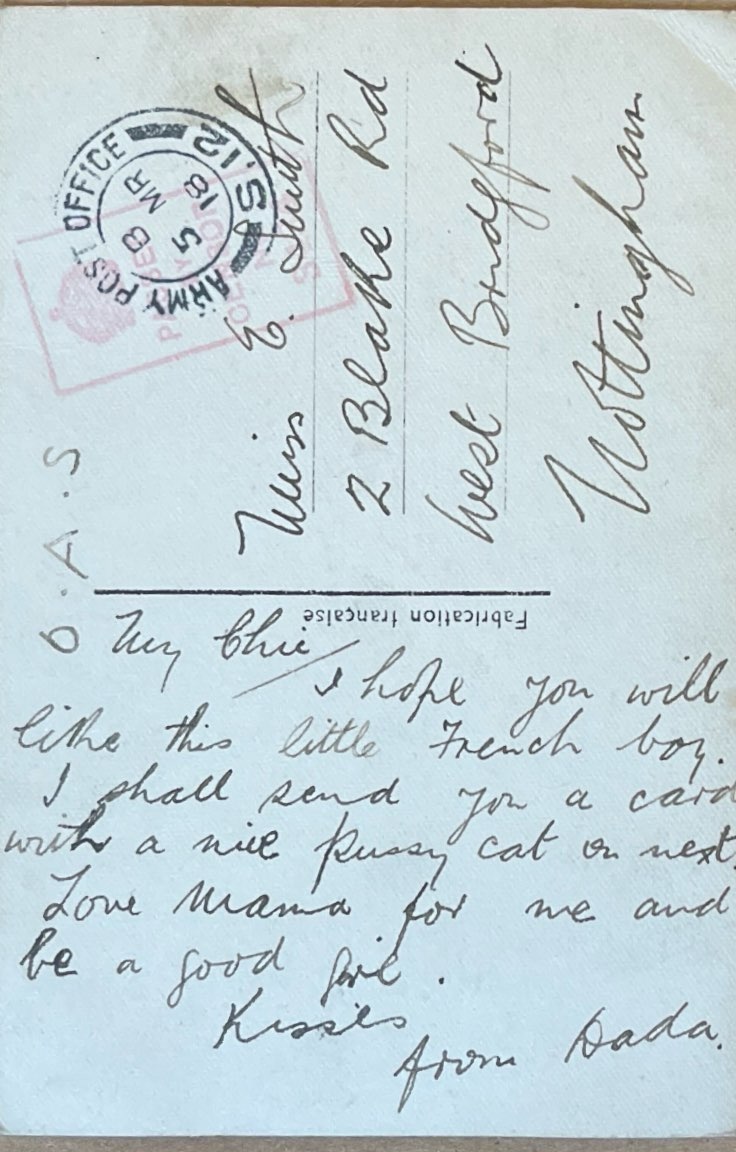 O.A.S
My Chic
I hope you will
like this little French boy.
I shall send you a card
with a nice pussy cat on next.
Love Mama for me and
be a good girl.
Kisses
from Dada.
Fabrication française
Miss E. Smith
2 Blake Rd
West Bridgford
Nottingham
ARMY POST OFFICE S.12
B
5 MR
18
PASSED
BY